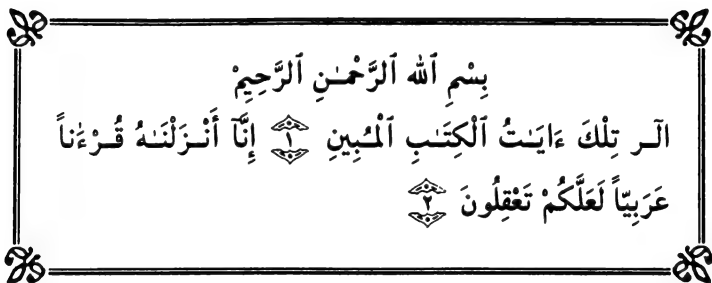 بِسْمِ ٱللّٰه ٱلرَّحْمَـٰنِ ٱلرَّحِيمِْ
الٓـر تِلْكَ ءَايَـٰتُ ٱلْكِتَـٰبِ ٱلْمُبِينِ ١ إِنَّآ أَنْـزَلْنَـٰهُ قُـرْءَٰناً
عَرَبِيّاً لَعَلَّكُمْ تَعْقِلُونَ ٢